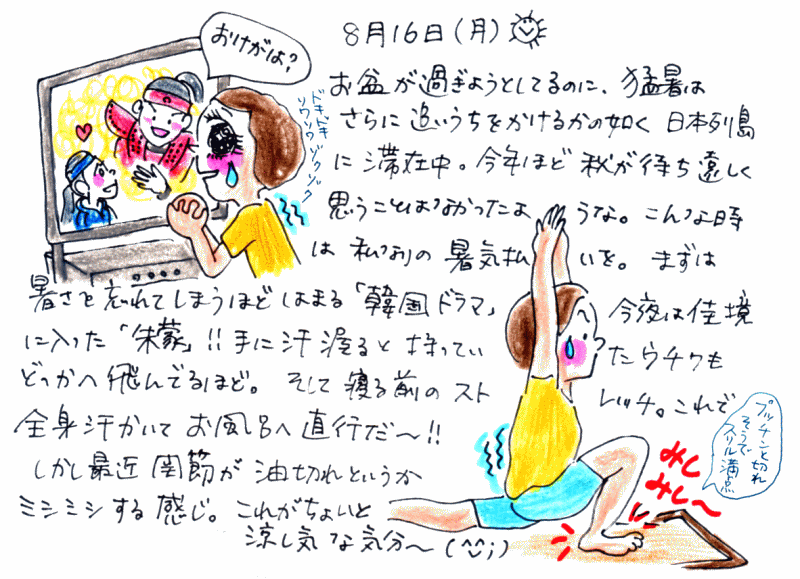 8月16日(月)
おけがは?
ドキドキ
ソワソワ ゾクゾク
お盆が過ぎようとしてるのに、猛暑は
さらに追いうちをかけるかの如く 日本列島
に滞在中。今年ほど秋が待ち遠しく
思うことはなかったよ うな。こんな時
は 私なりの 暑気払 いを。 まずは
暑さを忘れてしまうほど はまる「韓国ドラマ」 今夜は佳境
に入った「朱蒙」!! 手に汗握ると 持ってい たウチワも
どっかへ飛んでるほど。 そして寝る前のスト レッチ。これで
全身汗かいて お風呂へ直行だ〜!!
しかし最近 関節が 油切れというか
ミシミシする感じ。 これがちょいと
涼し気な気分〜 (^^;)
プッチンと切れ
そうで
スリル満点
みし
みし〜